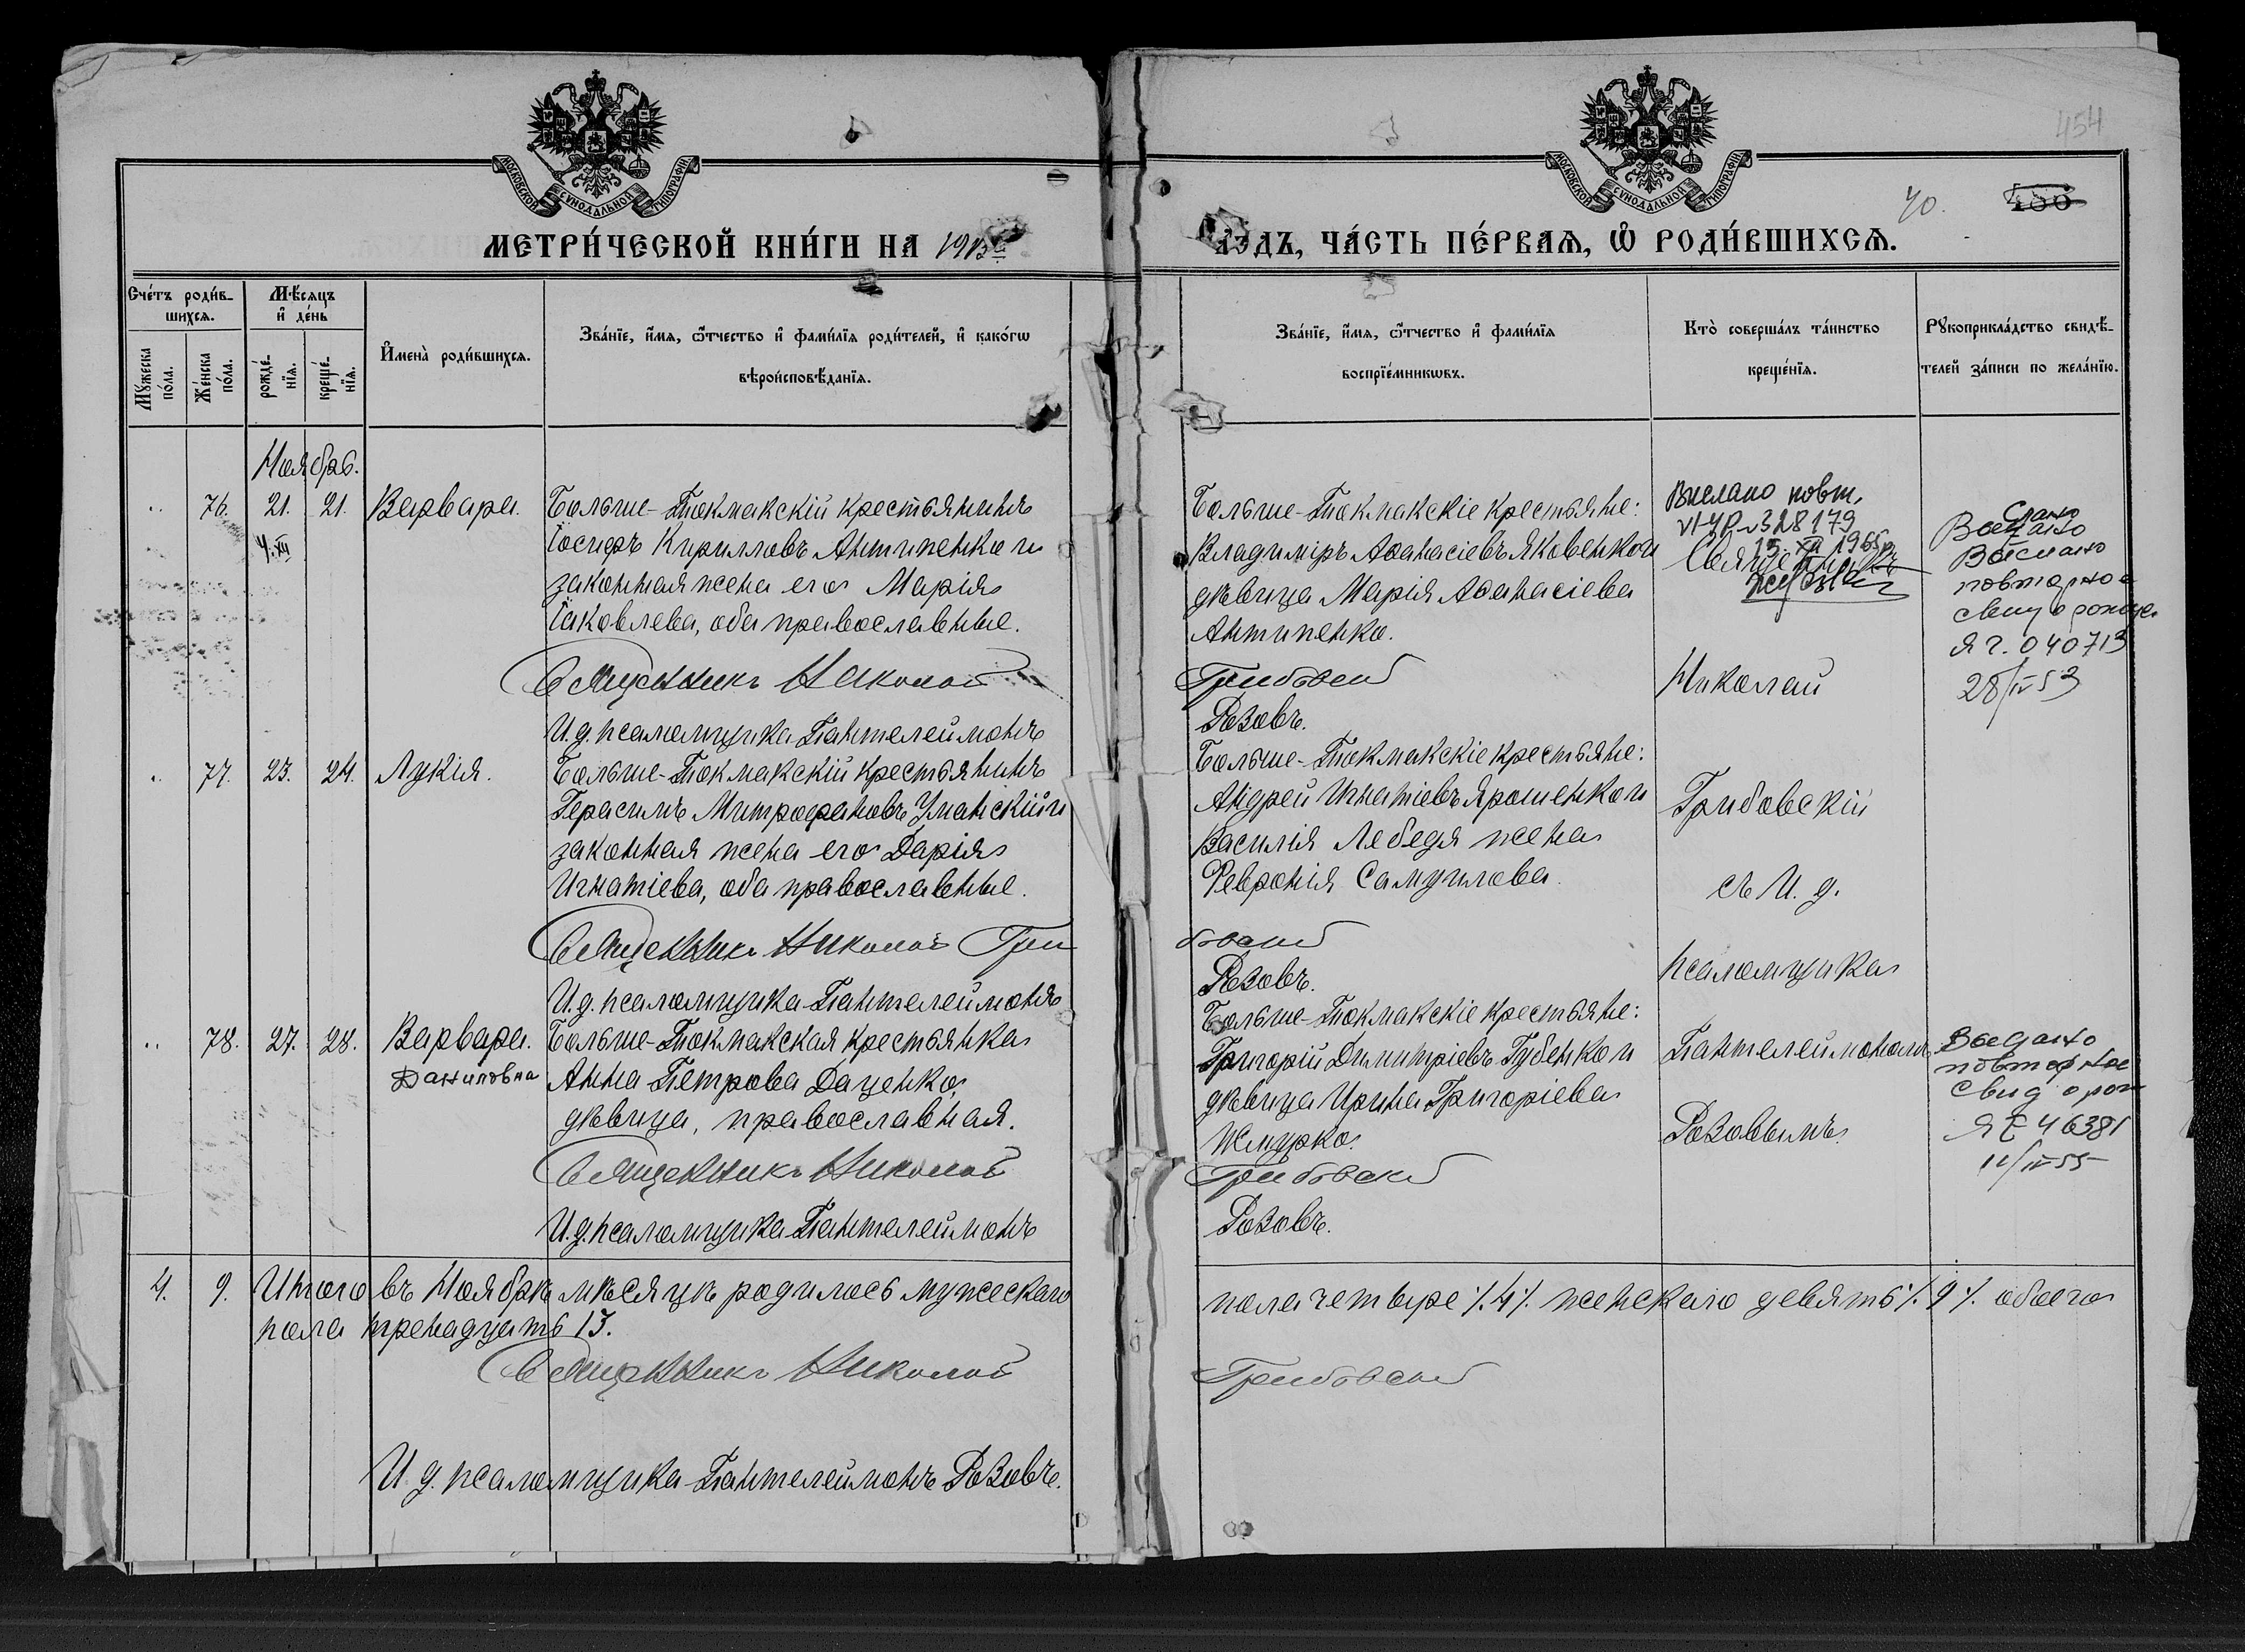 454
40.
МОСКОВСКОЙ СѴНОДАЛЬНОЙ ТИПОГРАФІИ
МОСКОВСКОЙ СѴНОДАЛЬНОЙ ТИПОГРАФІИ
МЕТРИ́ЧЕСКОЙ КНИ́ГИ НА 1913
ГОДЪ, ЧА́СТЬ ПЕ́РВАѦ, Ѡ РОДИ́ВШИХСѦ.
Сче́тъ роди́в-
шихсѧ.
Мꙋ́жеска по́ла.
Же́нска по́ла.
Мѣ́сѧцъ
и҆ де́нь
рожде́-
нїѧ.
креще́-
нїѧ.
И҆мена̀ роди́вшихсѧ.
Зва́нїе, и҆́мѧ, ѻ҆́тчество и҆ фами́лїѧ роди́телей, и҆ како́гѡ
вѣроисповѣ́данїѧ.
Зва́нїе, и҆́мѧ, ѻ҆́тчество и҆ фами́лїѧ
воспрїе́мникѡвъ.
Кто̀ соверша́лъ та́инство
креще́нїѧ.
Рꙋкоприкла́дство свидѣ́-
телей за́писи по жела́нїю.
Ноябрь.
76. 21. 21. Варвара.
4.XII
Больше-Токмакскій крестьянинъ
Іосифъ Кирилловъ Антипенко и
законная жена его Марія
Іаковлева, оба православные.
Священникъ Николай
И.д. псаломщика Пантелеймонъ
Больше-Токмакскіе крестьяне:
Владиміръ Аѳанасіевъ Яковенко и
дѣвица Марія Аѳанасіева
Антипенко.
Грибовскій
Розовъ.
Выслано повт.
328179
15 XII 1965р
Священникъ
Николай
Грибовскій
съ И. д.
псаломщика
Пантелеймономъ
Розовымъ.
Выслано
повторное
040713
28/IV 53
77. 23. 24. Лукія.
Больше-Токмакскій крестьянинъ
Герасимъ Митрофановъ Уманскій и
законная жена его Дарія
Игнатіева, оба православные.
Священникъ Николай Гри
И.д. псаломщика Пантелеймонъ
Больше-Токмакскіе крестьяне:
Андрей Игнатіевъ Ярошенко и
Василія Лебедя жена
Феѵронія Самуилова.
бовскій
Розовъ.
78. 27. 28. Варвара.
Даниловна
Больше-Токмакская крестьянка
Анна Петрова Даценко,
дѣвица, православная.
Священникъ Николай
И.д. псаломщика Пантелеймонъ
Больше-Токмакскіе крестьяне:
Григорій Димитріевъ Губенко и
дѣвица Ирина Григоріева
Жмурко.
Грибовскій
Розовъ.
Выдано
повторное
свид о рож
46381
11/IV 55
4. 9. Итого въ Ноябрѣ мѣсяцѣ родилось мужескаго
пола четыре ./. 4 ./. женскаго девять ./. 9 ./. обоего
пола тринадцать 13.
Священникъ Николай
Грибовскій
И.д. псаломщика Пантелеймонъ Розовъ.